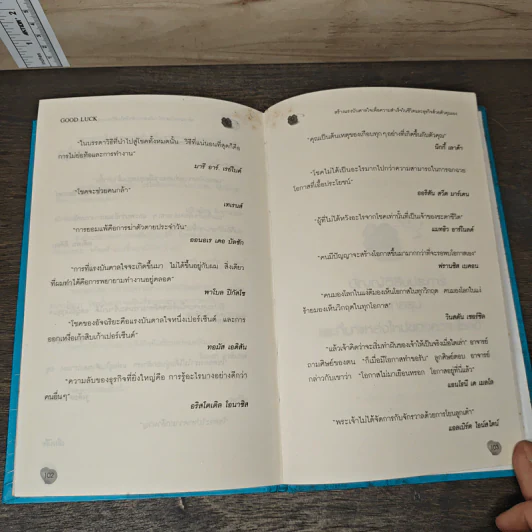 GOOD LUCK
"ในบรรดาวิธีที่นำไปสู่โชคทั้งหมดนั้น วิธีที่แน่นอนที่สุดก็คือ
การไม่ย่อท้อและการทำงาน"
มารี อาร์ เรย์โบต์
"โชคจะช่วยคนกล้า"
เทเรนส์
"การยอมแพ้คือการฆ่าตัวตายประจำวัน"
ออนอเร เดอ บัลซัก
"การที่แรงบันดาลใจจะเกิดขึ้นมา ไม่ได้ขึ้นอยู่กับผม สิ่งเดียว
ที่ผมทำได้คือการพยายามทำงานอยู่ตลอด"
พาโบล ปีกัสโซ
"โชคของอัจฉริยะคือแรงบันดาลใจหนึ่งเปอร์เซ็นต์ และการ
ออกเหงื่อเก้าสิบเก้าเปอร์เซ็นต์"
ทอมัส เอดิสัน
"ความลับของธุรกิจที่ยิ่งใหญ่คือ การรู้อะไรบางอย่างดีกว่า
คนอื่นๆ"
อริสโตเติล โอนาซิส
102
สร้างแรงบันดาลใจเพื่อความสำเร็จในชีวิตและธุรกิจด้วยตัวคุณเอง
"คุณเป็นต้นเหตุของเกือบทุกๆ อย่างที่เกิดขึ้นกับตัวคุณ"
นิกกี้ เลาด้า
"โชคไม่ได้เป็นอะไรมากไปกว่าความสามารถในการฉกฉวย
โอกาสที่เอื้อประโยชน์"
ออริสัน สวีต มาร์เดน
"ผู้ที่ไม่ได้หวังอะไรจากโชคเท่านั้นที่เป็นเจ้าของชะตาชีวิต"
แมทธิว อาร์โนลด์
"คนมีปัญญาจะสร้างโอกาสขึ้นมามากกว่าที่จะรอพบโอกาสเอง"
ฟรานซิส เบคอน
"คนมองโลกในแง่ดีมองเห็นโอกาสในทุกวิกฤต คนมองโลกในแง่
ร้ายมองเห็นวิกฤตในทุกโอกาส"
วินสตัน เชอร์ชิล
"แล้วเจ้าคิดว่าจะเริ่มทำฝันของเจ้าให้เป็นจริงเมื่อใดเล่า" อาจารย์
ถามศิษย์ของตน "ก็เมื่อมีโอกาสทำขอรับ" ลูกศิษย์ตอบ อาจารย์
กล่าวกับเขาว่า "โอกาสไม่มาเยือนหรอก โอกาสอยู่ที่นี่แล้ว"
แอนโธนี เด เมลโล
"พระเจ้าไม่ได้จัดการกับจักรวาลด้วยการโยนลูกเต๋า"
แอลเบิร์ต ไอน์สไตน์
103